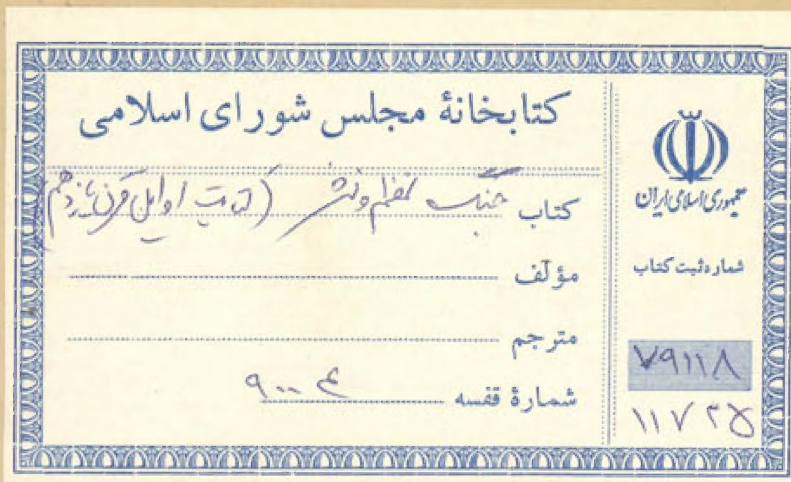 کتابخانهٔ مجلس شورای اسلامی
کتاب جنگ نظم و نثر (کتابت اوایل قرن یازدهم)
مؤلف
مترجم
شمارهٔ قفسه ۹۰۰۴
جمهوری اسلامی ایران
شماره ثبت کتاب
۷۹۱۱۸